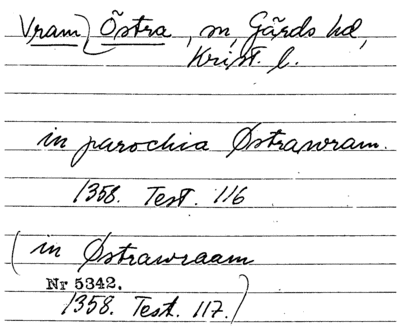 Vram, Östra, sn, Gärds hd,
Krist. l.
in parochia Østrawram.
1358. Test. 116
(in Østrawraam
Nr 5342.
1358. Test. 117.)